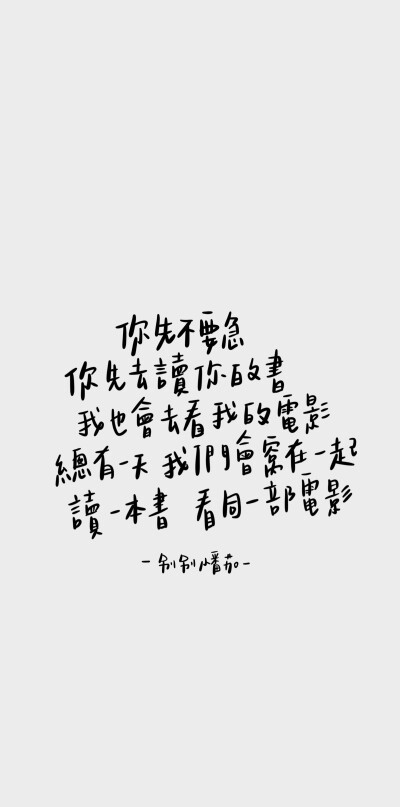 你先不要急
你先去讀你的書
我也會去看我的電影
總有一天 我們會窩在一起
讀一本書 看同一部電影
-别别小番茄-